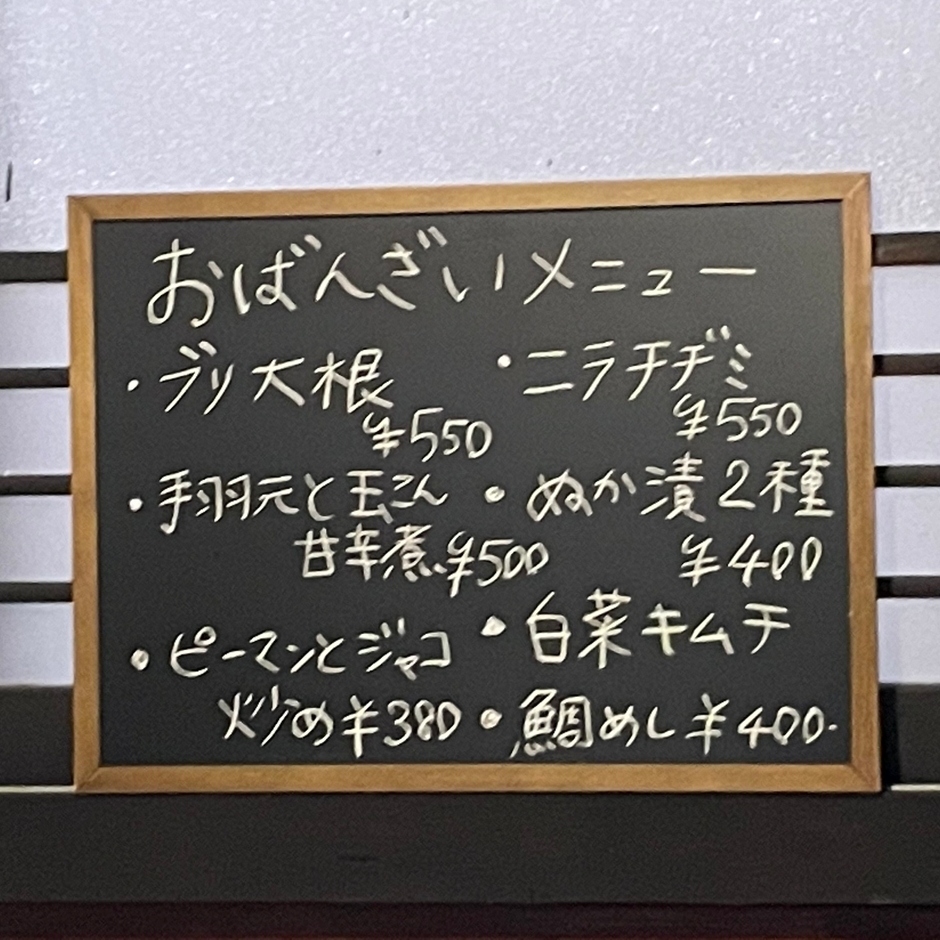 おばんざいメニュー
・ブリ大根
¥550
・手羽元と玉こん
甘辛煮¥500
・ピーマンとジャコ
炒め¥380
・ニラチヂミ
¥550
・ぬか漬2種
¥400
・白菜キムチ
・鯛めし¥400.